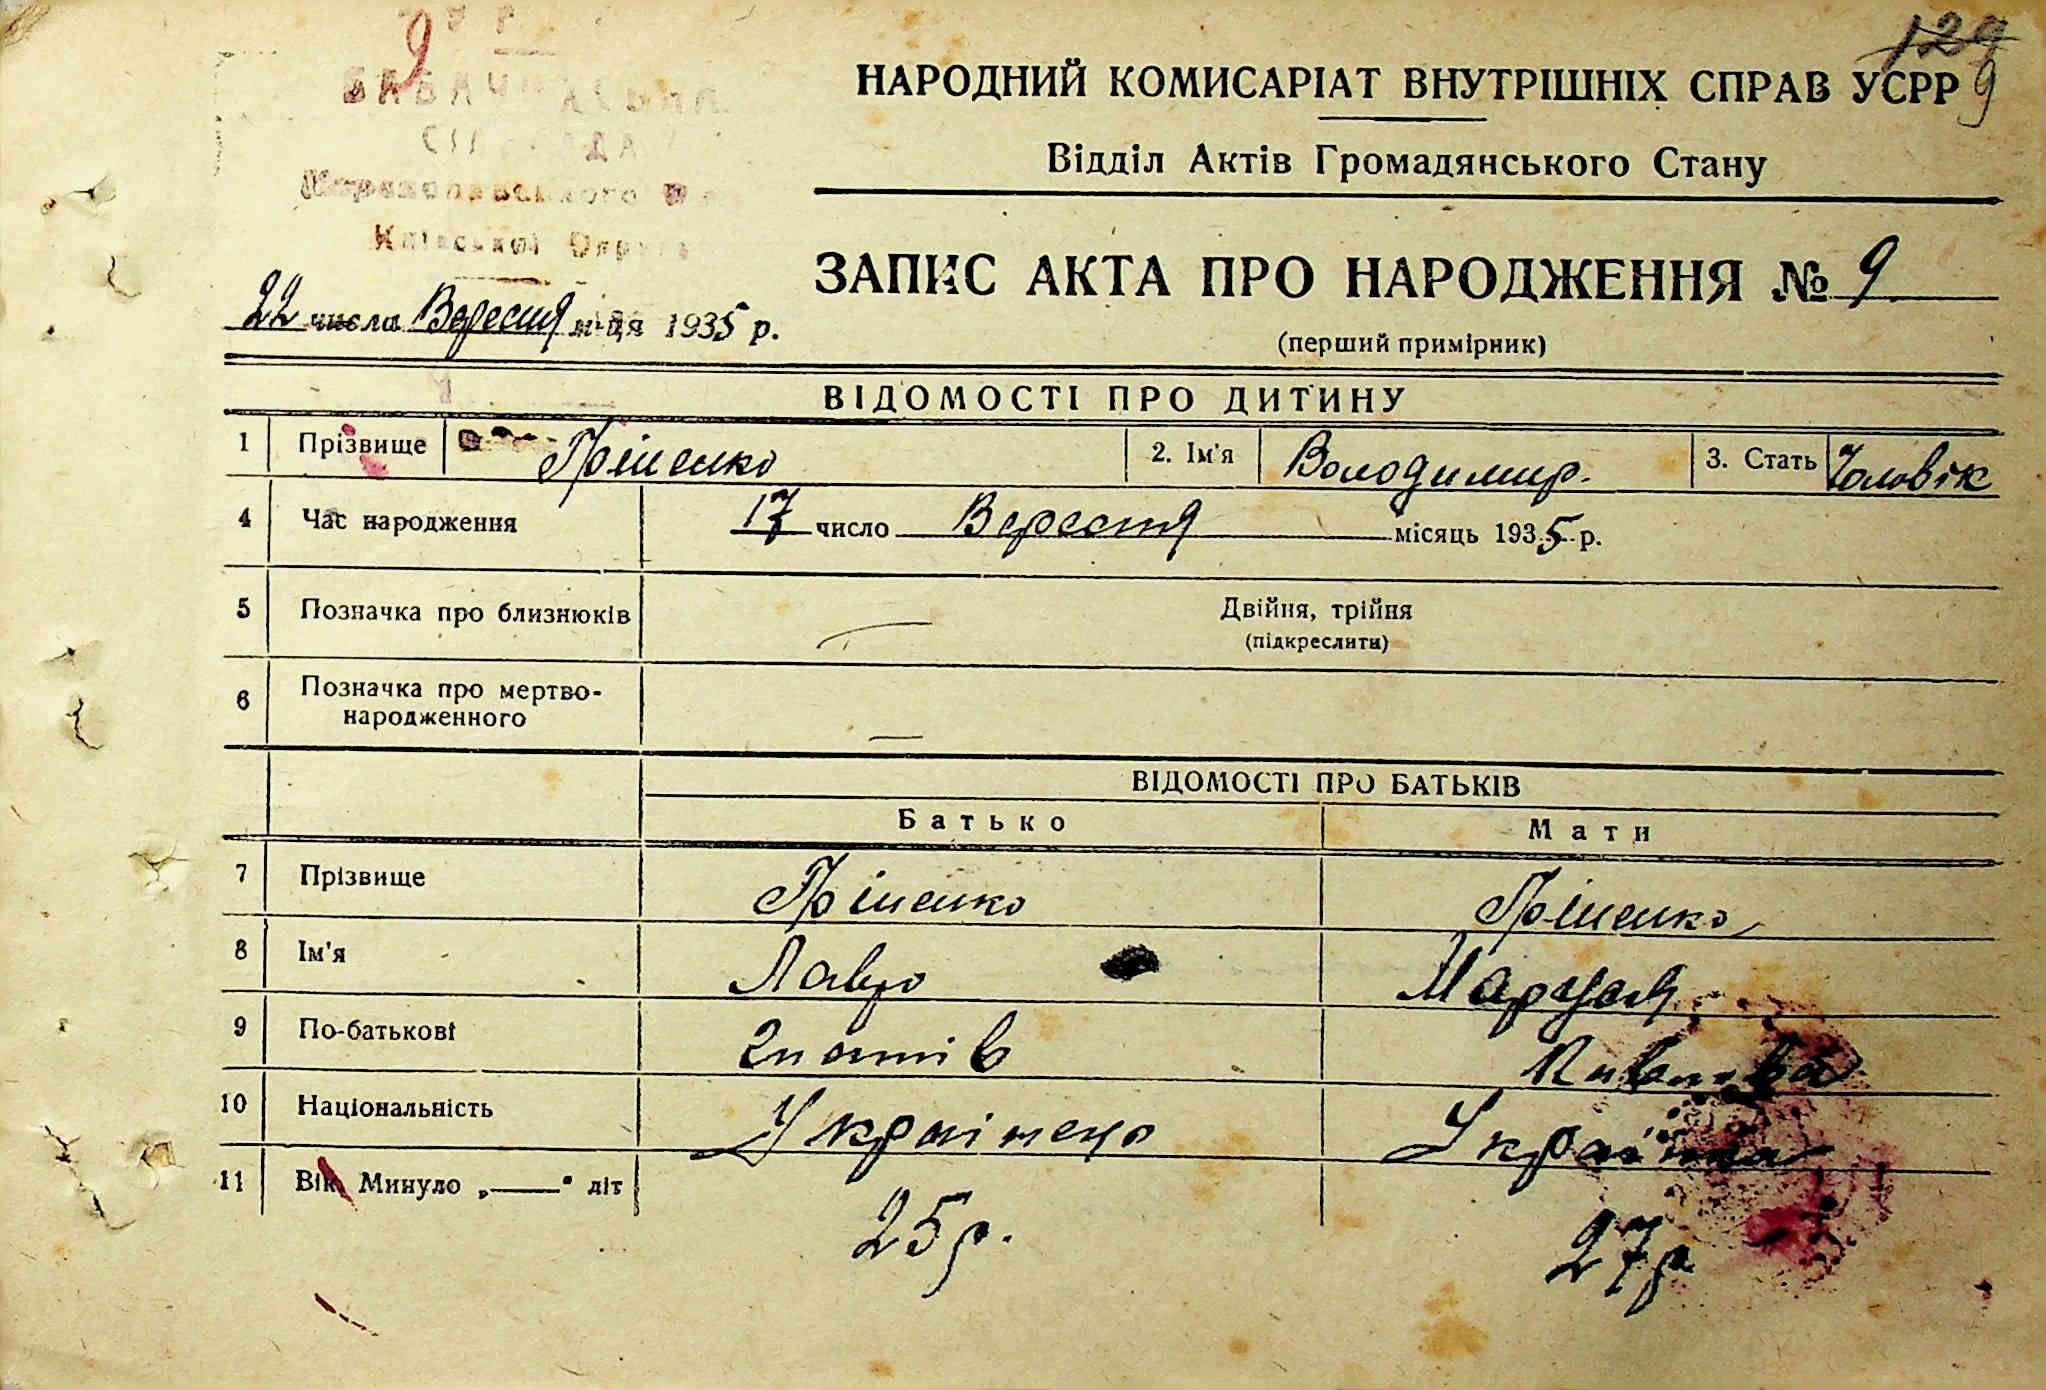 9
129
9
НАРОДНИЙ КОМИСАРІАТ ВНУТРІШНІХ СПРАВ УСРР
Відділ Актів Громадянського Стану
Київської Округи
ЗАПИС АКТА ПРО НАРОДЖЕННЯ № 9
22 числа Вересня м-ця 1935 р.
(перший примірник)
ВІДОМОСТІ ПРО ДИТИНУ
1 Прізвище Грішенко 2. Ім'я Володимир. 3. Стать Чоловік
4 Час народження 17 число Вересня місяць 1935 р.
5 Позначка про близнюків — Двійня, трійня
(підкреслити)
6 Позначка про мертво-
народженного —
ВІДОМОСТІ ПРО БАТЬКІВ
Батько Мати
7 Прізвище Грішенко Грішенко
8 Ім'я Лавро Маруся
9 По-батькові Гнатів
10 Національність Українець Українка
11 Вік Минуло „—“ літ 25 р. 27 р